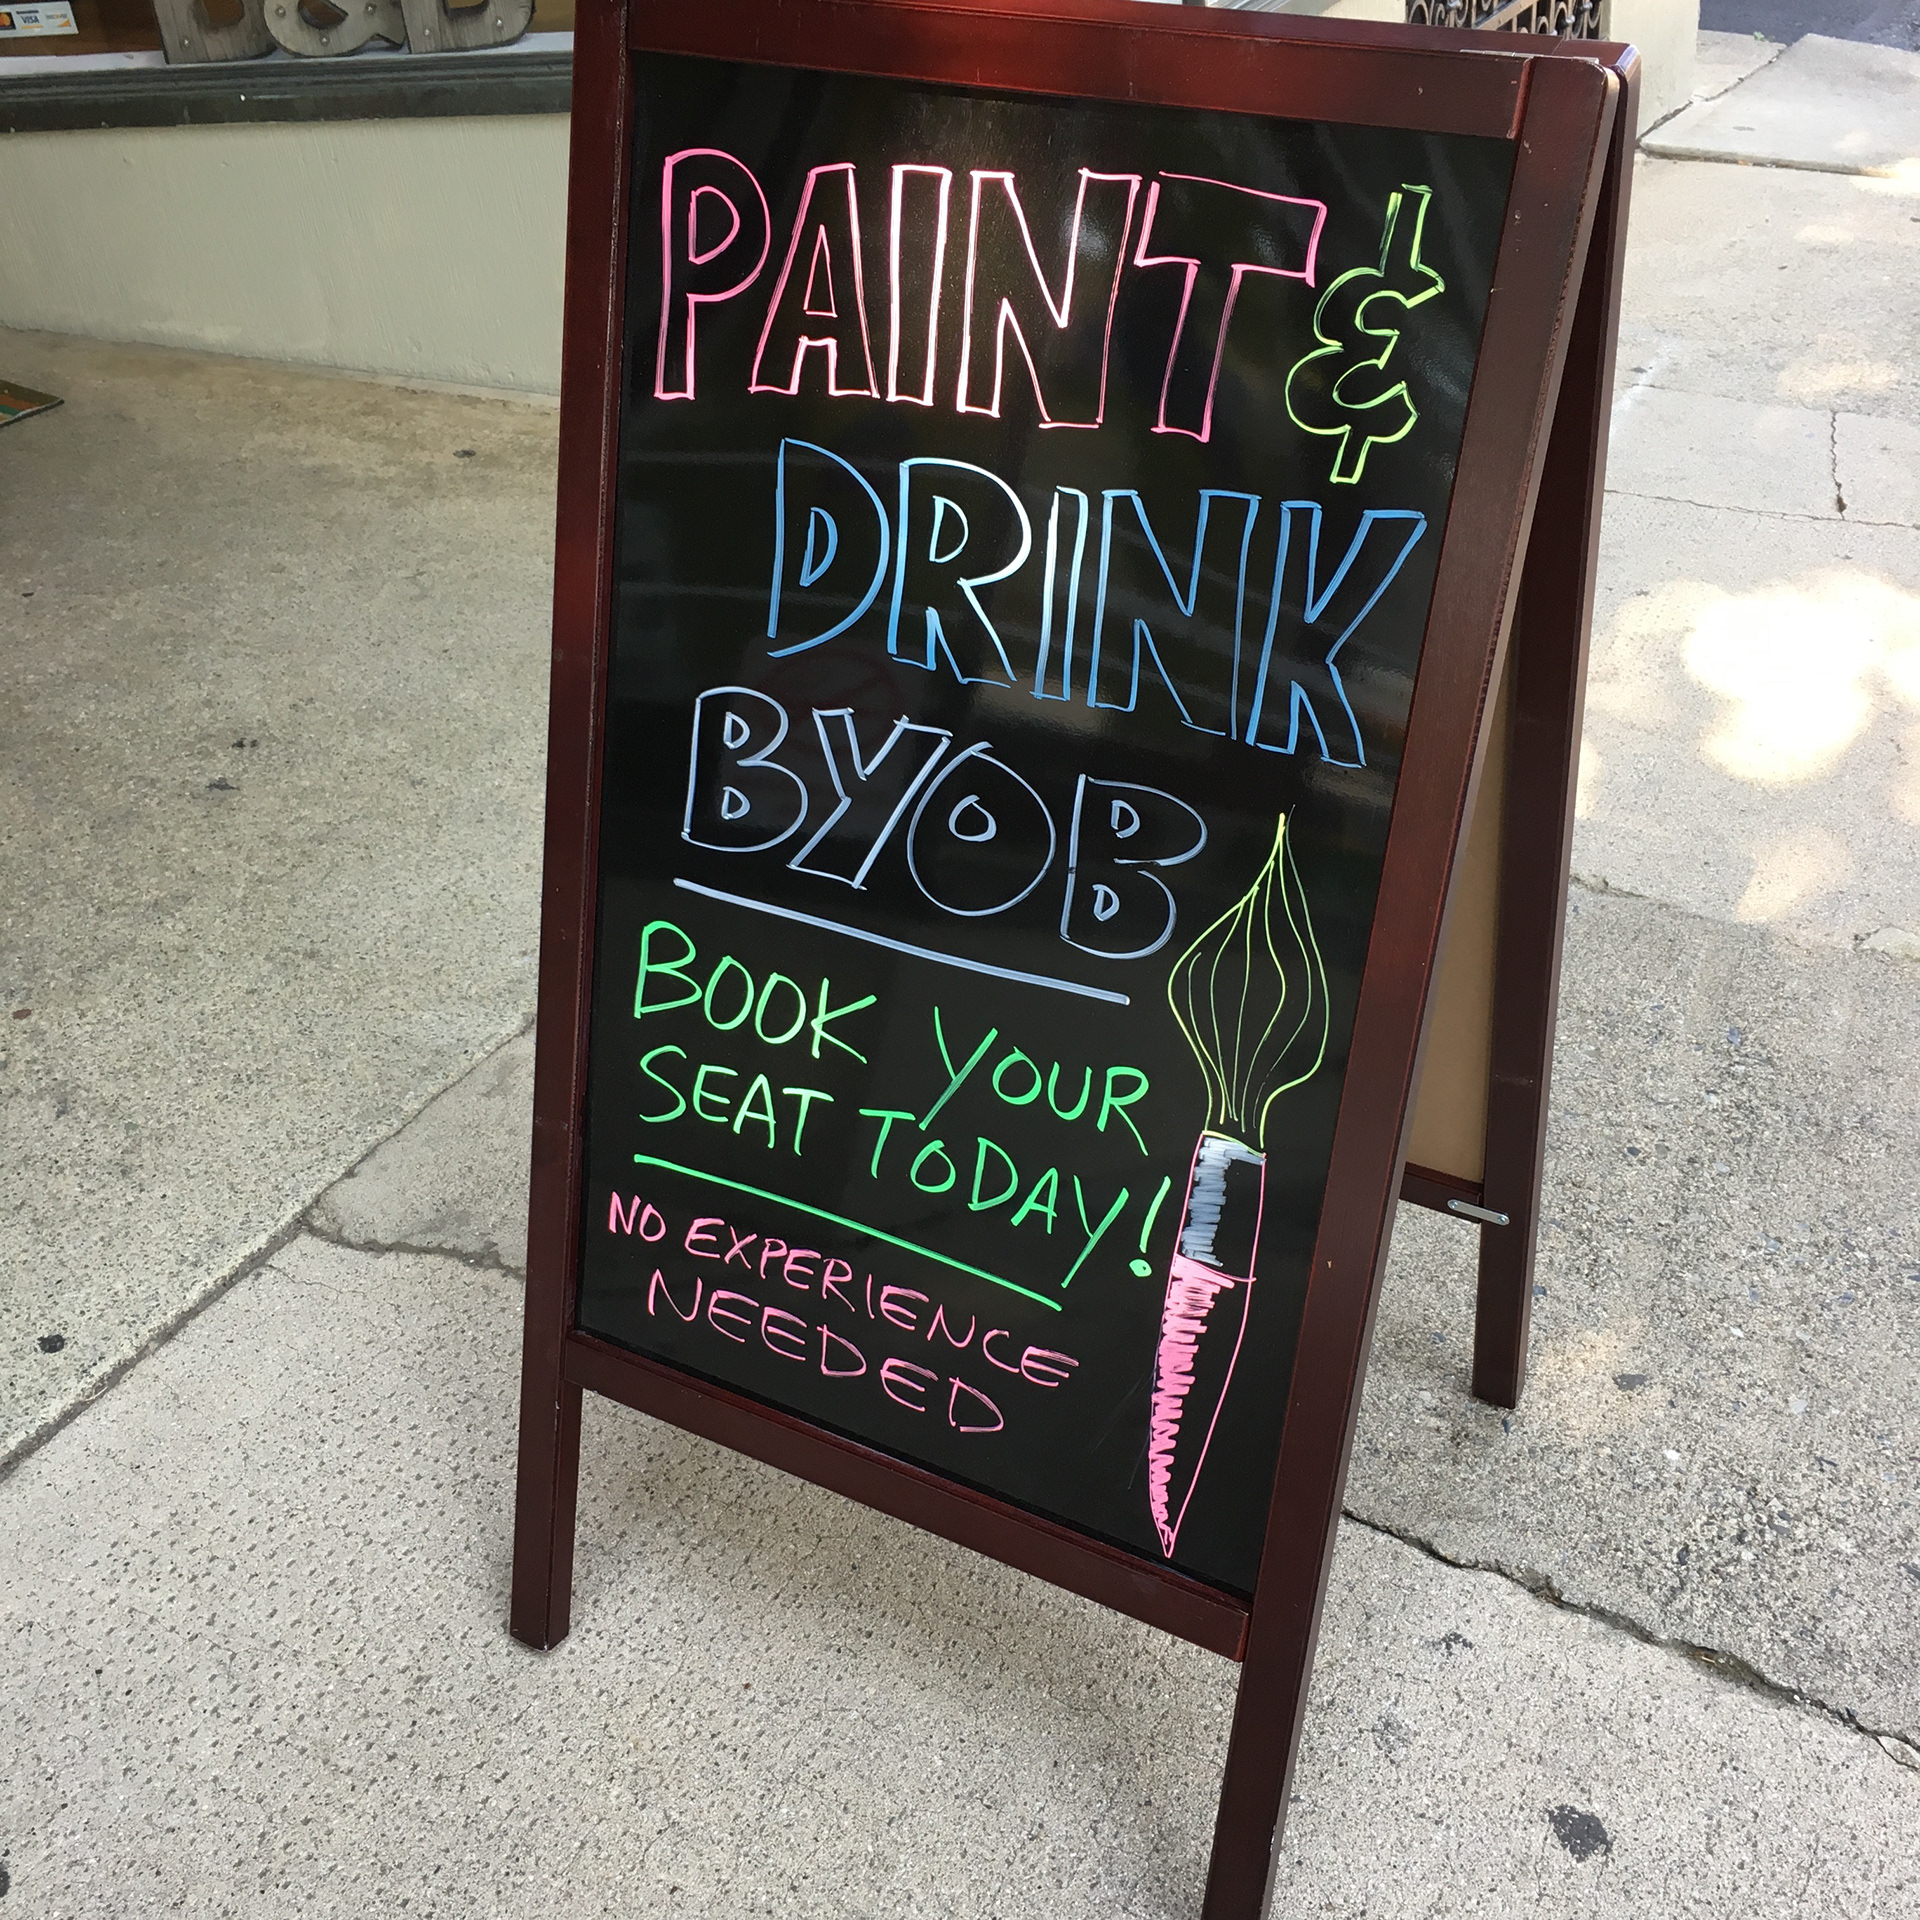 VISA
PAINT &
DRINK
BYOB
BOOK YOUR
SEAT TODAY!
NO EXPERIENCE
NEEDED